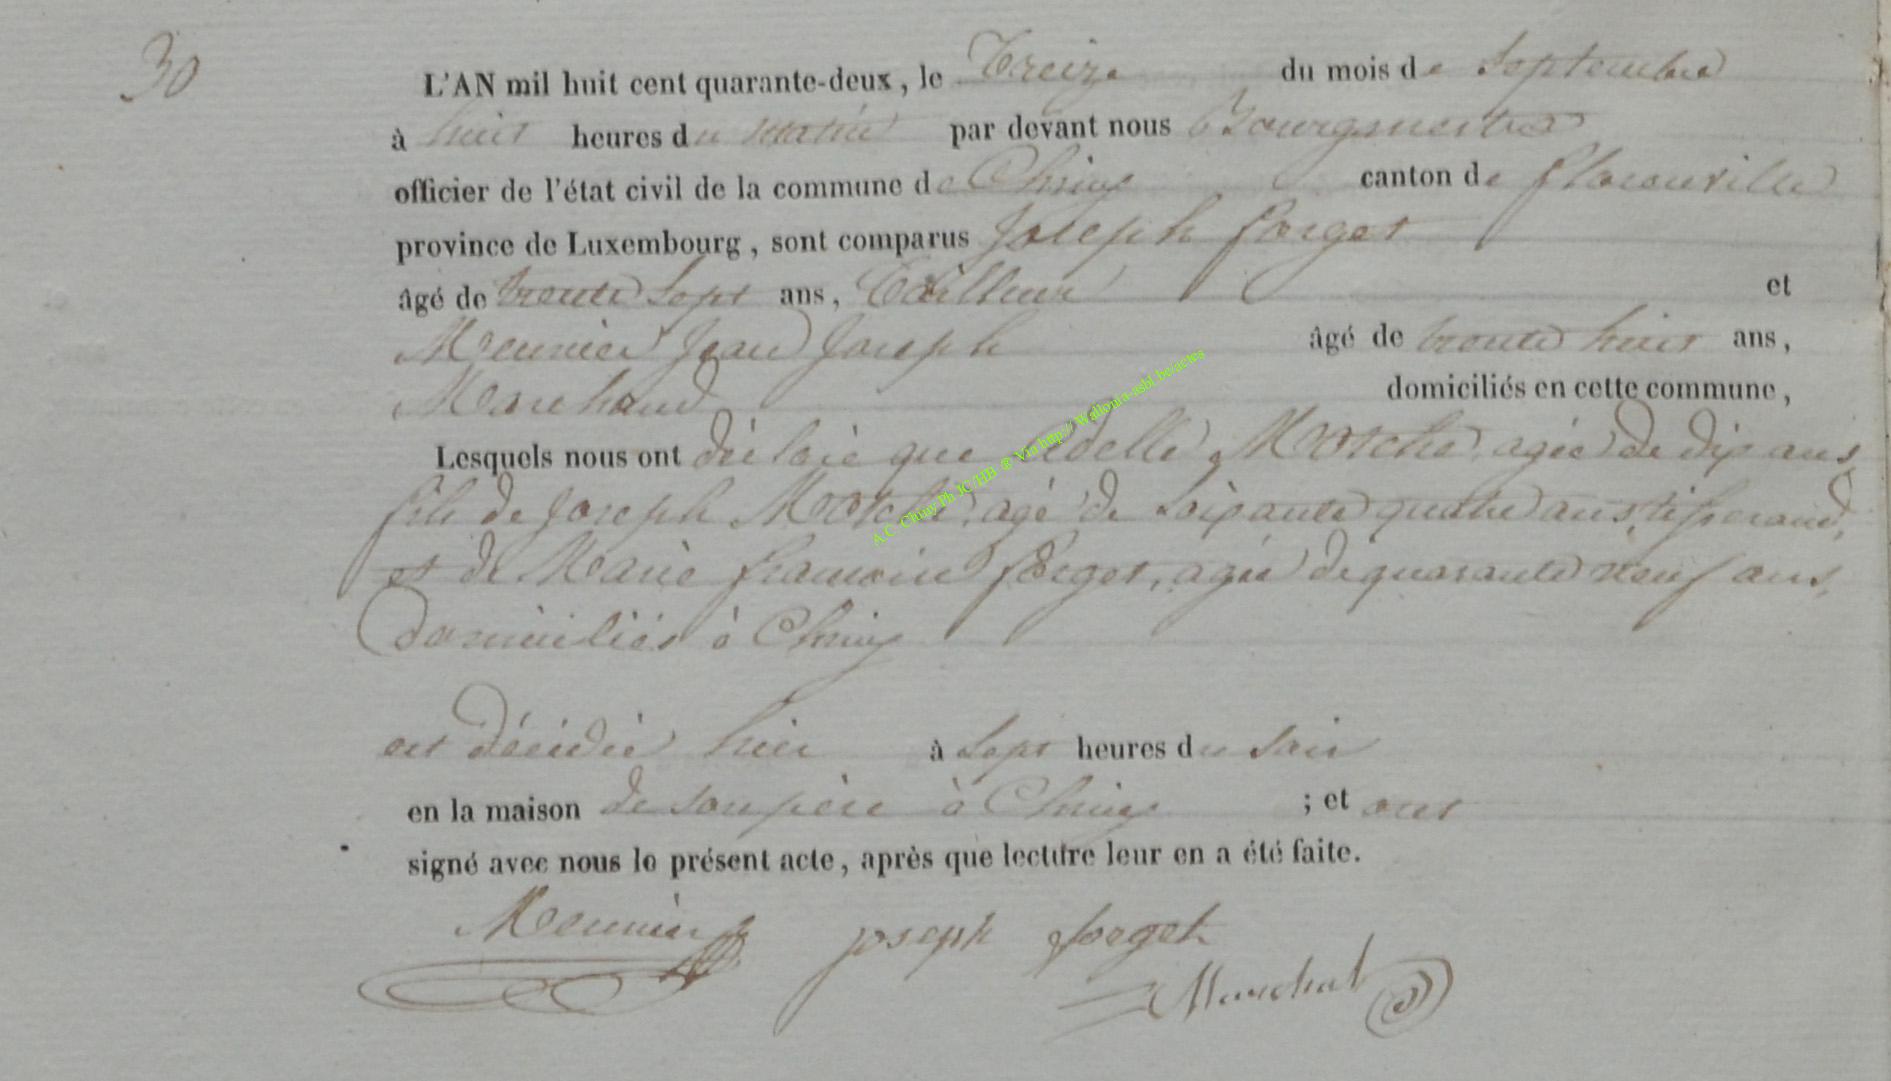 30
L'AN mil huit cent quarante-deux, le Treize du mois de Septembre
à huit heures du matin par devant nous Bourgmestre
officier de l'état civil de la commune de Chiny canton de florenville
province de Luxembourg, sont comparus Joseph forget
âgé de trente Sept ans, Tailleur et
Meunier Jean Joseph âgé de trente huit ans,
Marchand domiciliés en cette commune,
Lesquels nous ont déclaré que adelle agée de dix ans
fils de Joseph agé de Soixante quatre ans, tisserand,
et de Marie francoise forget, agée de quarante neuf ans,
domiciliés à Chiny
est décédée hier à Sept heures du Soir
en la maison de son père à Chiny ; et ont
signé avec nous le présent acte, après que lecture leur en a été faite.
Meunier joseph forget
Marchal
A.C. Chiny Ph JC HB ® Via http:// Wallonia-asbl.be/actes